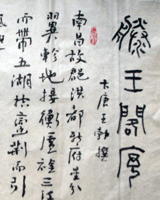 滕王閣序
唐王勃撰
南昌故郡洪都新府星分
翼軫地接衡廬襟三江
而帶五湖控蠻荊而引